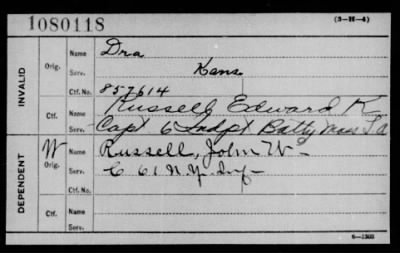 1080118
(3-H-4)
INVALID
Orig.
Name Dra
Serv. Kans.
Ctf. No. 857614
Ctf.
Name Russell, Edward K
Serv. Capt 6 Indpt Batty Mass L a
DEPENDENT
W
Orig.
Name Russell, John W-
Serv. C 61 N.Y. Inf-
Ctf. No.
Ctf.
Name
Serv.